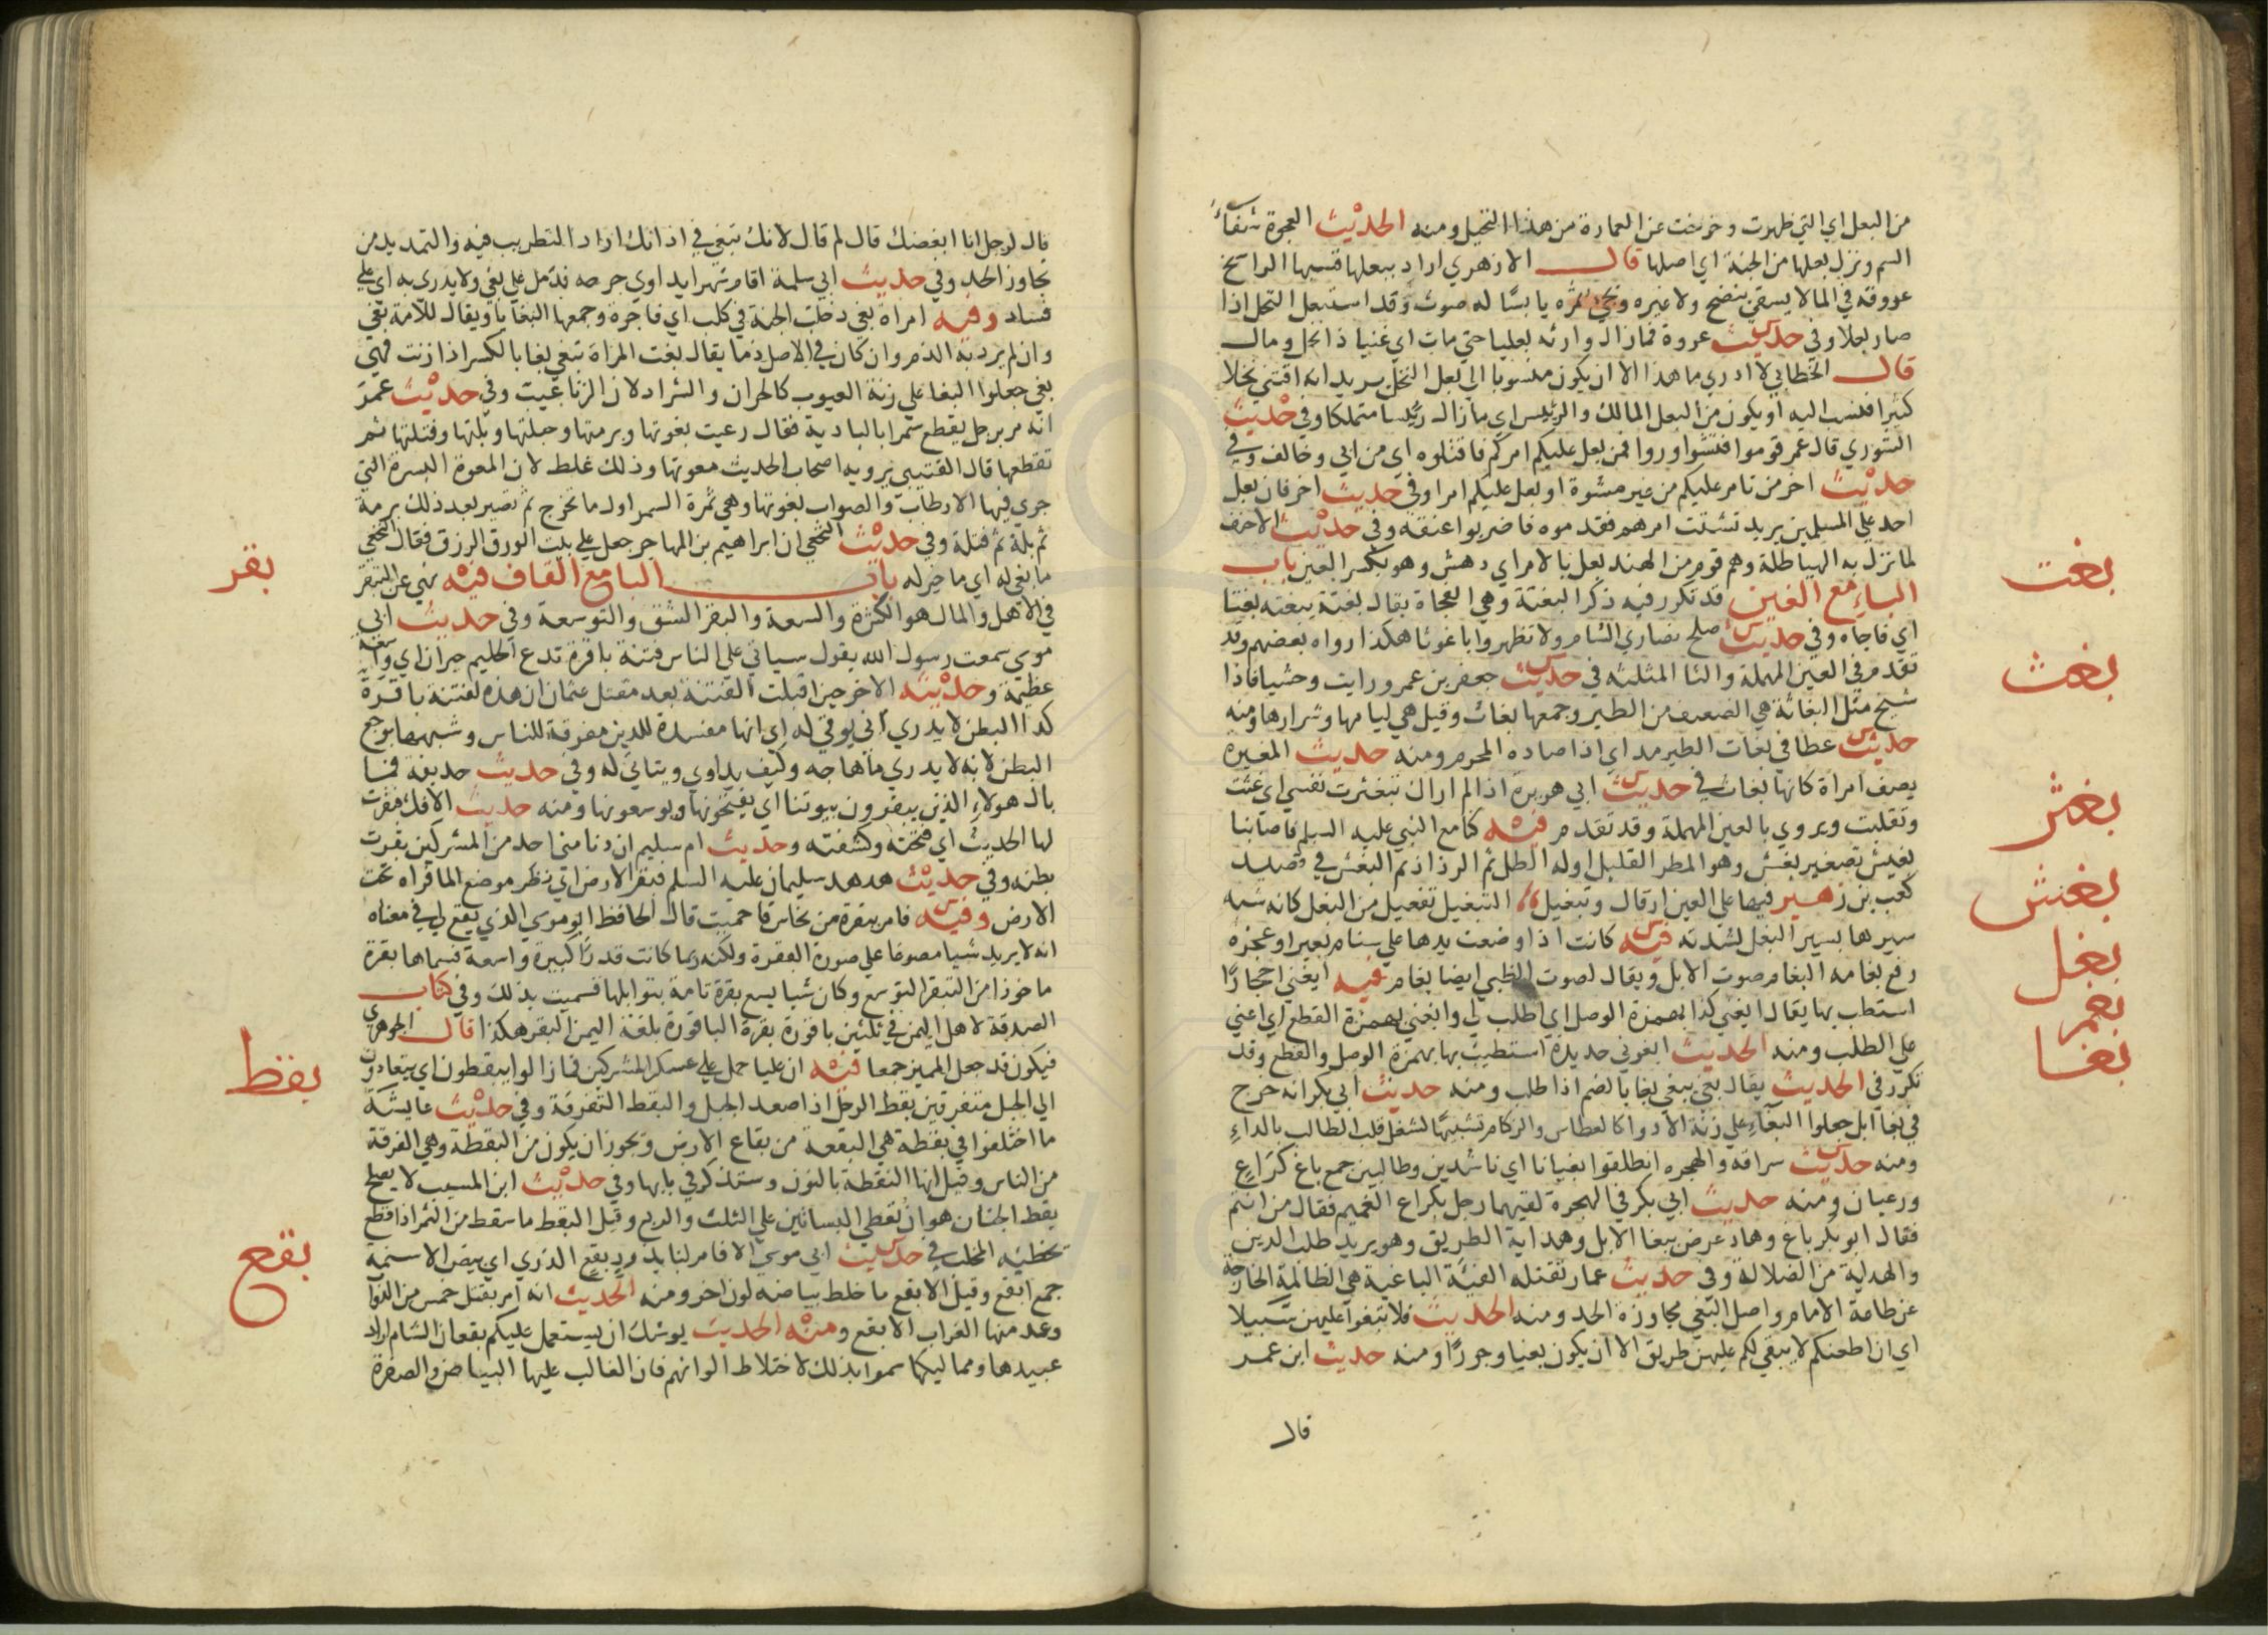 من البعل اي التي ظهرت وخرجت عن العمارة من هذا النخيل ومنه الحديث العجوة شفاء
السم ونزل بعلها من الجنة اي اصلها قال الازهري اراد ببعلها قسبها الراسخ
عروقه في الما لا يسقى بنضح ولا غيره ويجيء ثمره يابسا له صوت وقد استبعل النخل اذا
صار بعلا وفي حديث عروة فما زال وارثه بعليا حتى مات اي غنيا ذا نخل ومال
قال الخطابي لا ادري ما هذا الا ان يكون منسوبا الى بعل النخل يريد انه اقتنى نخلا
كثيرا فنسب اليه او يكون من البعل المالك والرئيس اي ما زال رئيسا متملكا وفي حديث
الشوري قال عمر قوموا فتشاوروا فمن بعل عليكم امركم فاقتلوه اي من ابى وخالف وفي
حديث اخر من تامر عليكم من غير مشوة او بعل عليكم امرا وفي حديث اخر فان بعل
احد على المسلمين يريد تشتت امرهم فقدموه فاضربوا عنقه وفي حديث الاحنف
لما نزل به الهياطلة وهم قوم من الهند بعل بالامر اي دهش وهو بكسر العين باب
الباء مع الغين قد تكرر فيه ذكر البغتة وهي الفجاة يقال بغته يبغته بغتا
اي فاجاه وفي حديث صلح نصارى الشام ولا تظهروا باعوثا هكذا رواه بعضهم وقد
تقدم في العين المهملة والثا المثلثه في حديث جعفر بن عمرو رايت وحشيا فاذا
شيخ مثل البغاثة هي الضعيف من الطير وجمعها بغاث وقيل هي ليامها وشرارها ومنه
حديث عطا في بغاث الطير مد اي اذا صاده المحرم ومنه حديث المغيرة
يصف امراة كانها بغاث في حديث ابي هريرة اذا لم ارك تبغثرت نفسي اي غثت
وتقلبت ويروي بالعين المهملة وقد تقدم فيه كنا مع النبي عليه السلم فاصابنا
بغيش تصغير بغش وهو المطر القليل اوله الطل ثم الرذاذ ثم البغش في قصيد
كعب بن زهير فيها على الاين ارقال وتبغيل التبغيل تفعيل من البغل كانه شبه
سيرها بسير البغل لشدته فيه كانت اذا وضعت يدها علي سنام بعير او عجزه
رفع بغامه البغام صوت الابل ويقال لصوت الظبي ايضا بغام فيه ابغني احجارا
استطب بها يقال ابغني كذا بهمزة الوصل اي اطلب لي وابغني بهمزة القطع اي اعني
على الطلب ومنه الحديث ابغوني حديدة استطيب بها بهمزة الوصل والقطع وقد
تكرر في الحديث يقال بغى يبغي بغا بالضم اذا طلب ومنه حديث ابي بكر انه خرج
في بغا ابل جعلوا البغاء على زنة الادوا كالعطاس والزكام تشبيها لشغل قلب الطالب بالداء
ومنه حديث سراقة والهجره انطلقوا بغيانا اي ناشدين وطالبين جمع باغ كراع
ورعيان ومنه حديث ابي بكر في الهجرة لقيهما رجل بكراع الغميم فقال من انتم
فقال ابو بكر باغ وهاد عرض ببغا الابل وهداية الطريق وهو يريد طلب الدين
والهداية من الضلالة وفي حديث عمار تقتله الفئة الباغية هي الظالمة الخارجة
عن طاعة الامام واصل البغي مجاوزة الحد ومنه الحديث فلا تبغوا عليهن سبيلا
اي ان اطعنكم لا يبقى لكم عليهن طريق الا ان يكون بغيا وجورا ومنه حديث ابن عمر
قال
بغت
بغث
بغثر
بغش
بغل
بغم
بغا
قال لرجل انا ابغضك قال لم قال لانك تبغي في اذانك اراد التطريب فيه والتمديد من
تجاوز الحد وفي حديث ابي سلمة اقام شهرا يداوي جرحه فدمل على بغي ولا يدري به اي على
فساد وفيه امراة بغي دخلت الجنة في كلب اي فاجرة وجمعها البغايا ويقال للامة بغي
وان لم يرد به الذم وان كان في الاصل ذما يقال بغت المراة تبغي بغا بالكسر اذا زنت فهي
بغي جعلوا البغا على زنة العيوب كالحران والشراد لان الزنا عيب وفي حديث عمر
انه مر برجل يقطع سمرا بالبادية فقال رعيت بغوتها وبرمتها وحبلتها وبلتها وفتلتها ثم
تقطعها قال القتيبي يرويه اصحاب الحديث معوتها وذلك غلط لان المعوة البسرة التي
جرى فيها الارطاب والصواب بغوتها وهي ثمرة السمر اول ما تخرج ثم تصير بعد ذلك برمة
ثم بلة ثم فتلة وفي حديث النخعي ان ابراهيم بن المهاجر جعل على بيت الورق الرزق فقال النخعي
ما بغي له اي ما خير له باب البا مع القاف فيه نهى عن التبقر
في الاهل والمال هو الكثرة والسعة والبقر الشق والتوسعة وفي حديث ابي
موسى سمعت رسول الله يقول سياتي على الناس فتنة باقرة تدع الحليم حيران اي واسعة
عظيمة وحديثه الاخر حين اقبلت الفتنة بعد مقتل عثمان ان هذه لفتنة باقرة
كدا البطن لا يدري انى يوتى له اي انها مفسدة للدين مفرقة للناس وشبهها بوجع
البطن لانه لا يدري ما هاجه وكيف يداوى ويتانى له وفي حديث حذيفة فما
بال هولاء الذين يبقرون بيوتنا اي يفتحونها ويوسعونها ومنه حديث الافك فبقرت
لها الحديث اي فتحته وكشفته وحديث ام سليم ان دنا مني احد من المشركين بقرت
بطنه وفي حديث هدهد سليمان عليه السلم فبقر الارض اي نظر موضع الما فراه تحت
الارض وفيه فامر ببقرة من نحاس فاحميت قال الحافظ ابو موسى الذي يقع لي في معناه
انه لا يريد شيا مصوغا على صورة البقرة ولكنه ربما كانت قدرا كبيرة واسعة فسماها بقرة
ماخوذا من التبقر التوسع وكان شيا يسع بقرة تامة بتوابلها فسميت بذلك وفي كتاب
الصدقة لاهل اليمن في ثلثين باقورة بقرة الباقورة بلغة اليمن البقر هكذا قال الجوهري
فيكون قد جعل المميز جمعا فيه ان عليا حمل على عسكر المشركين فما زالوا يبقطون اي يتعادون
الى الجبل متفرقين بقط الرجل اذا صعد الجبل والبقط التفرقة وفي حديث عايشة
ما اختلفوا في بقطة هي البقعة من بقاع الارض ويجوز ان يكون من البقطة وهي الفرقة
من الناس وقيل انها النقطة بالنون وستذكر في بابها وفي حديث ابن المسيب لا يصلح
بقط الجنان هو ان تعطي البساتين على الثلث والربع وقيل البقط ما سقط من الثمر اذا قطع
يخطئه المخلب في حديث ابي موسى الا فامر لنا بذود بقع الذري اي بيض الاسنمة
جمع ابقع وقيل الابقع ما خلط بياضه لون اخر ومنه الحديث انه امر بقتل خمس من الدوا
وعد منها الغراب الابقع ومنه الحديث يوشك ان يستعمل عليكم بقعان الشام اراد
عبيدها ومماليكها سموا بذلك لاختلاط الوانهم فان الغالب عليها البياض والصفرة
بقر
بقط
بقع